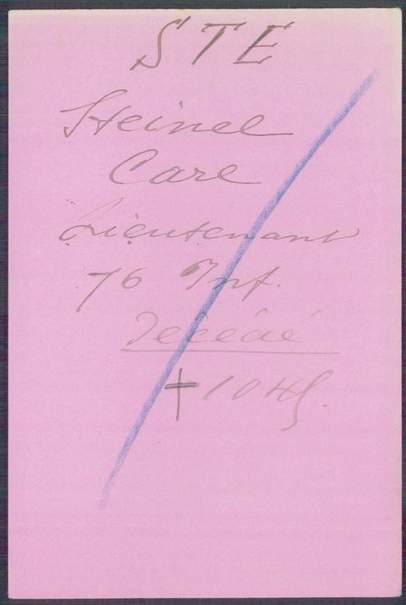 STE
Steinel
Carl
Lieutenant
76 Inf.
Décédé